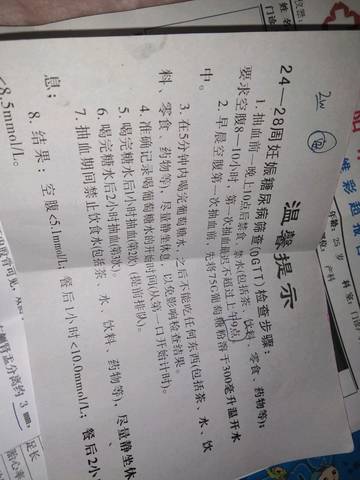 温馨提示
24—28周妊娠糖尿病筛查(OGTT)检查步骤：
1. 抽血前一晚上10点后禁食、禁水(包括茶、饮料、零食、药物等)；
要求空腹8—10小时，第一次抽血最迟不超过上午9点
2. 早晨空腹第一次抽血前，先将75G葡萄糖粉溶于300毫升温开水
中。
3. 在5分钟内喝完葡萄糖水，之后不能吃任何东西(包括茶、水、饮
料、零食、药物等)，尽量静坐休息，以免影响检查结果。
4. 准确记录喝葡萄糖水的开始时间(从第一口开始计时)。
5. 喝完糖水后1小时抽血(第2次)（提前排队）。
6. 喝完糖水后2小时抽血(第3次)。
7. 抽血期间禁止饮食水包括茶、水、饮料、药物等)，尽量静坐休
息；
8. 结果：空腹<5.1mmol/L；餐后1小时<10.0mmol/L；餐后2小
<8.5mmol/L。
年龄：25 岁
产科
约 3 周
足长
胎心率